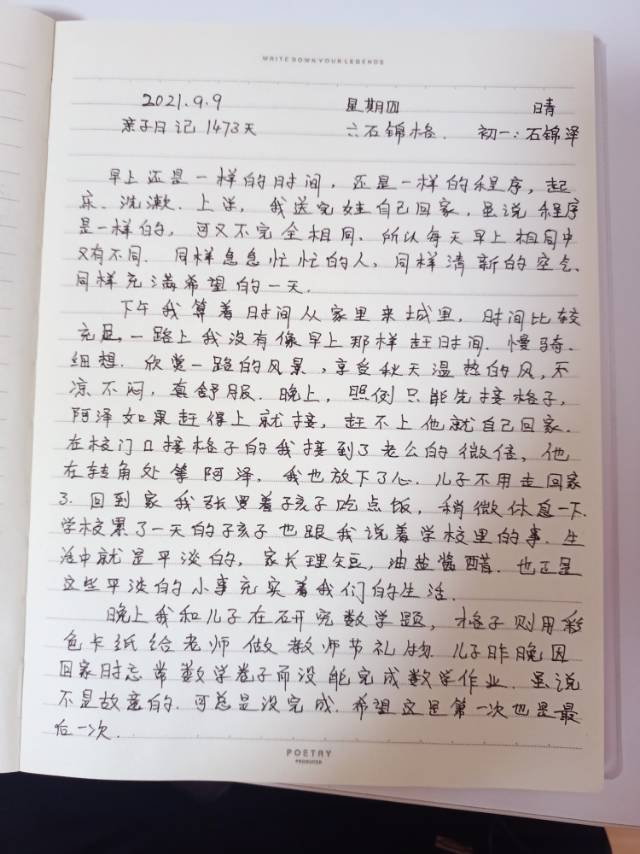 WRITE DOWN YOUR LEGENDS
2021.9.9 星期四 晴
亲子日记 1473天 六石锦格. 初一:石锦泽
早上还是一样的时间，还是一样的程序，起
床、洗漱、上学，我送完娃自己回家，虽说程序
是一样的，可又不完全相同，所以每天早上相同中
又有不同．同样急急忙忙的人，同样清新的空气、
同样充满希望的一天．
下午我算着时间从家里来城里，时间比较
充足，一路上我没有像早上那样赶时间．慢骑、
细想．欣赏一路的风景，享受秋天温热的风，不
凉不闷，真舒服．晚上，照例只能先接格子，
阿泽如果赶得上就接，赶不上他就自己回家．
在校门口接格子的我接到了老公的微信，他
在转角处等阿泽，我也放下了心．儿子不用走回家
了．回到家我张罗着孩子吃点饭，稍微休息一下．
学校累了一天的孩子也跟我说着学校里的事．生
活中就是平淡的，家长理短，油盐酱醋．也正是
这些平淡的小事充实着我们的生活．
晚上我和儿子在研究数学题，格子则用彩
色卡纸给老师做教师节礼物．儿子昨晚因
回家时忘带数学卷子而没能完成数学作业．虽说
不是故意的．可总是没完成．希望这是第一次也是最
后一次．
POETRY
PRODUCER